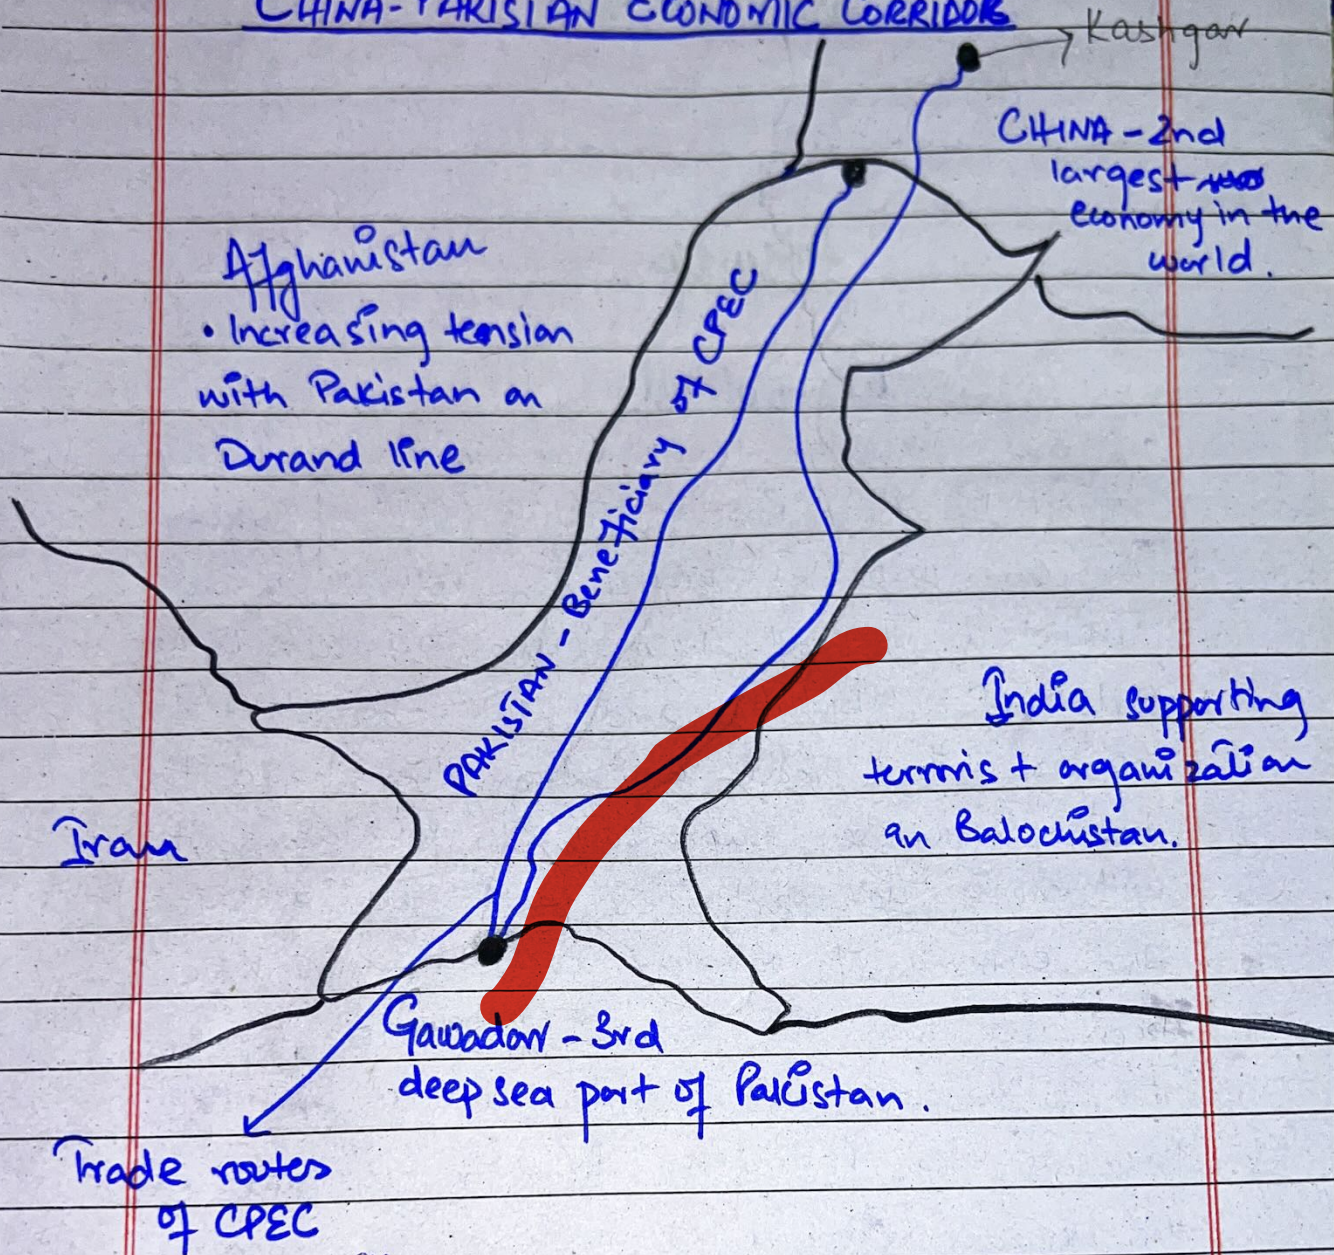 CHINA-PAKISTAN ECONOMIC CORRIDOR
Kashgar
CHINA - 2nd
largest
economy in the
world.
Afghanistan
• Increasing tension
with Pakistan on
Durand line
PAKISTAN - Beneficiary of CPEC
India supporting
terroris + organization
in Balochistan.
Iran
Gawadar - 3rd
deep sea port of Pakistan.
Trade routes
of CPEC